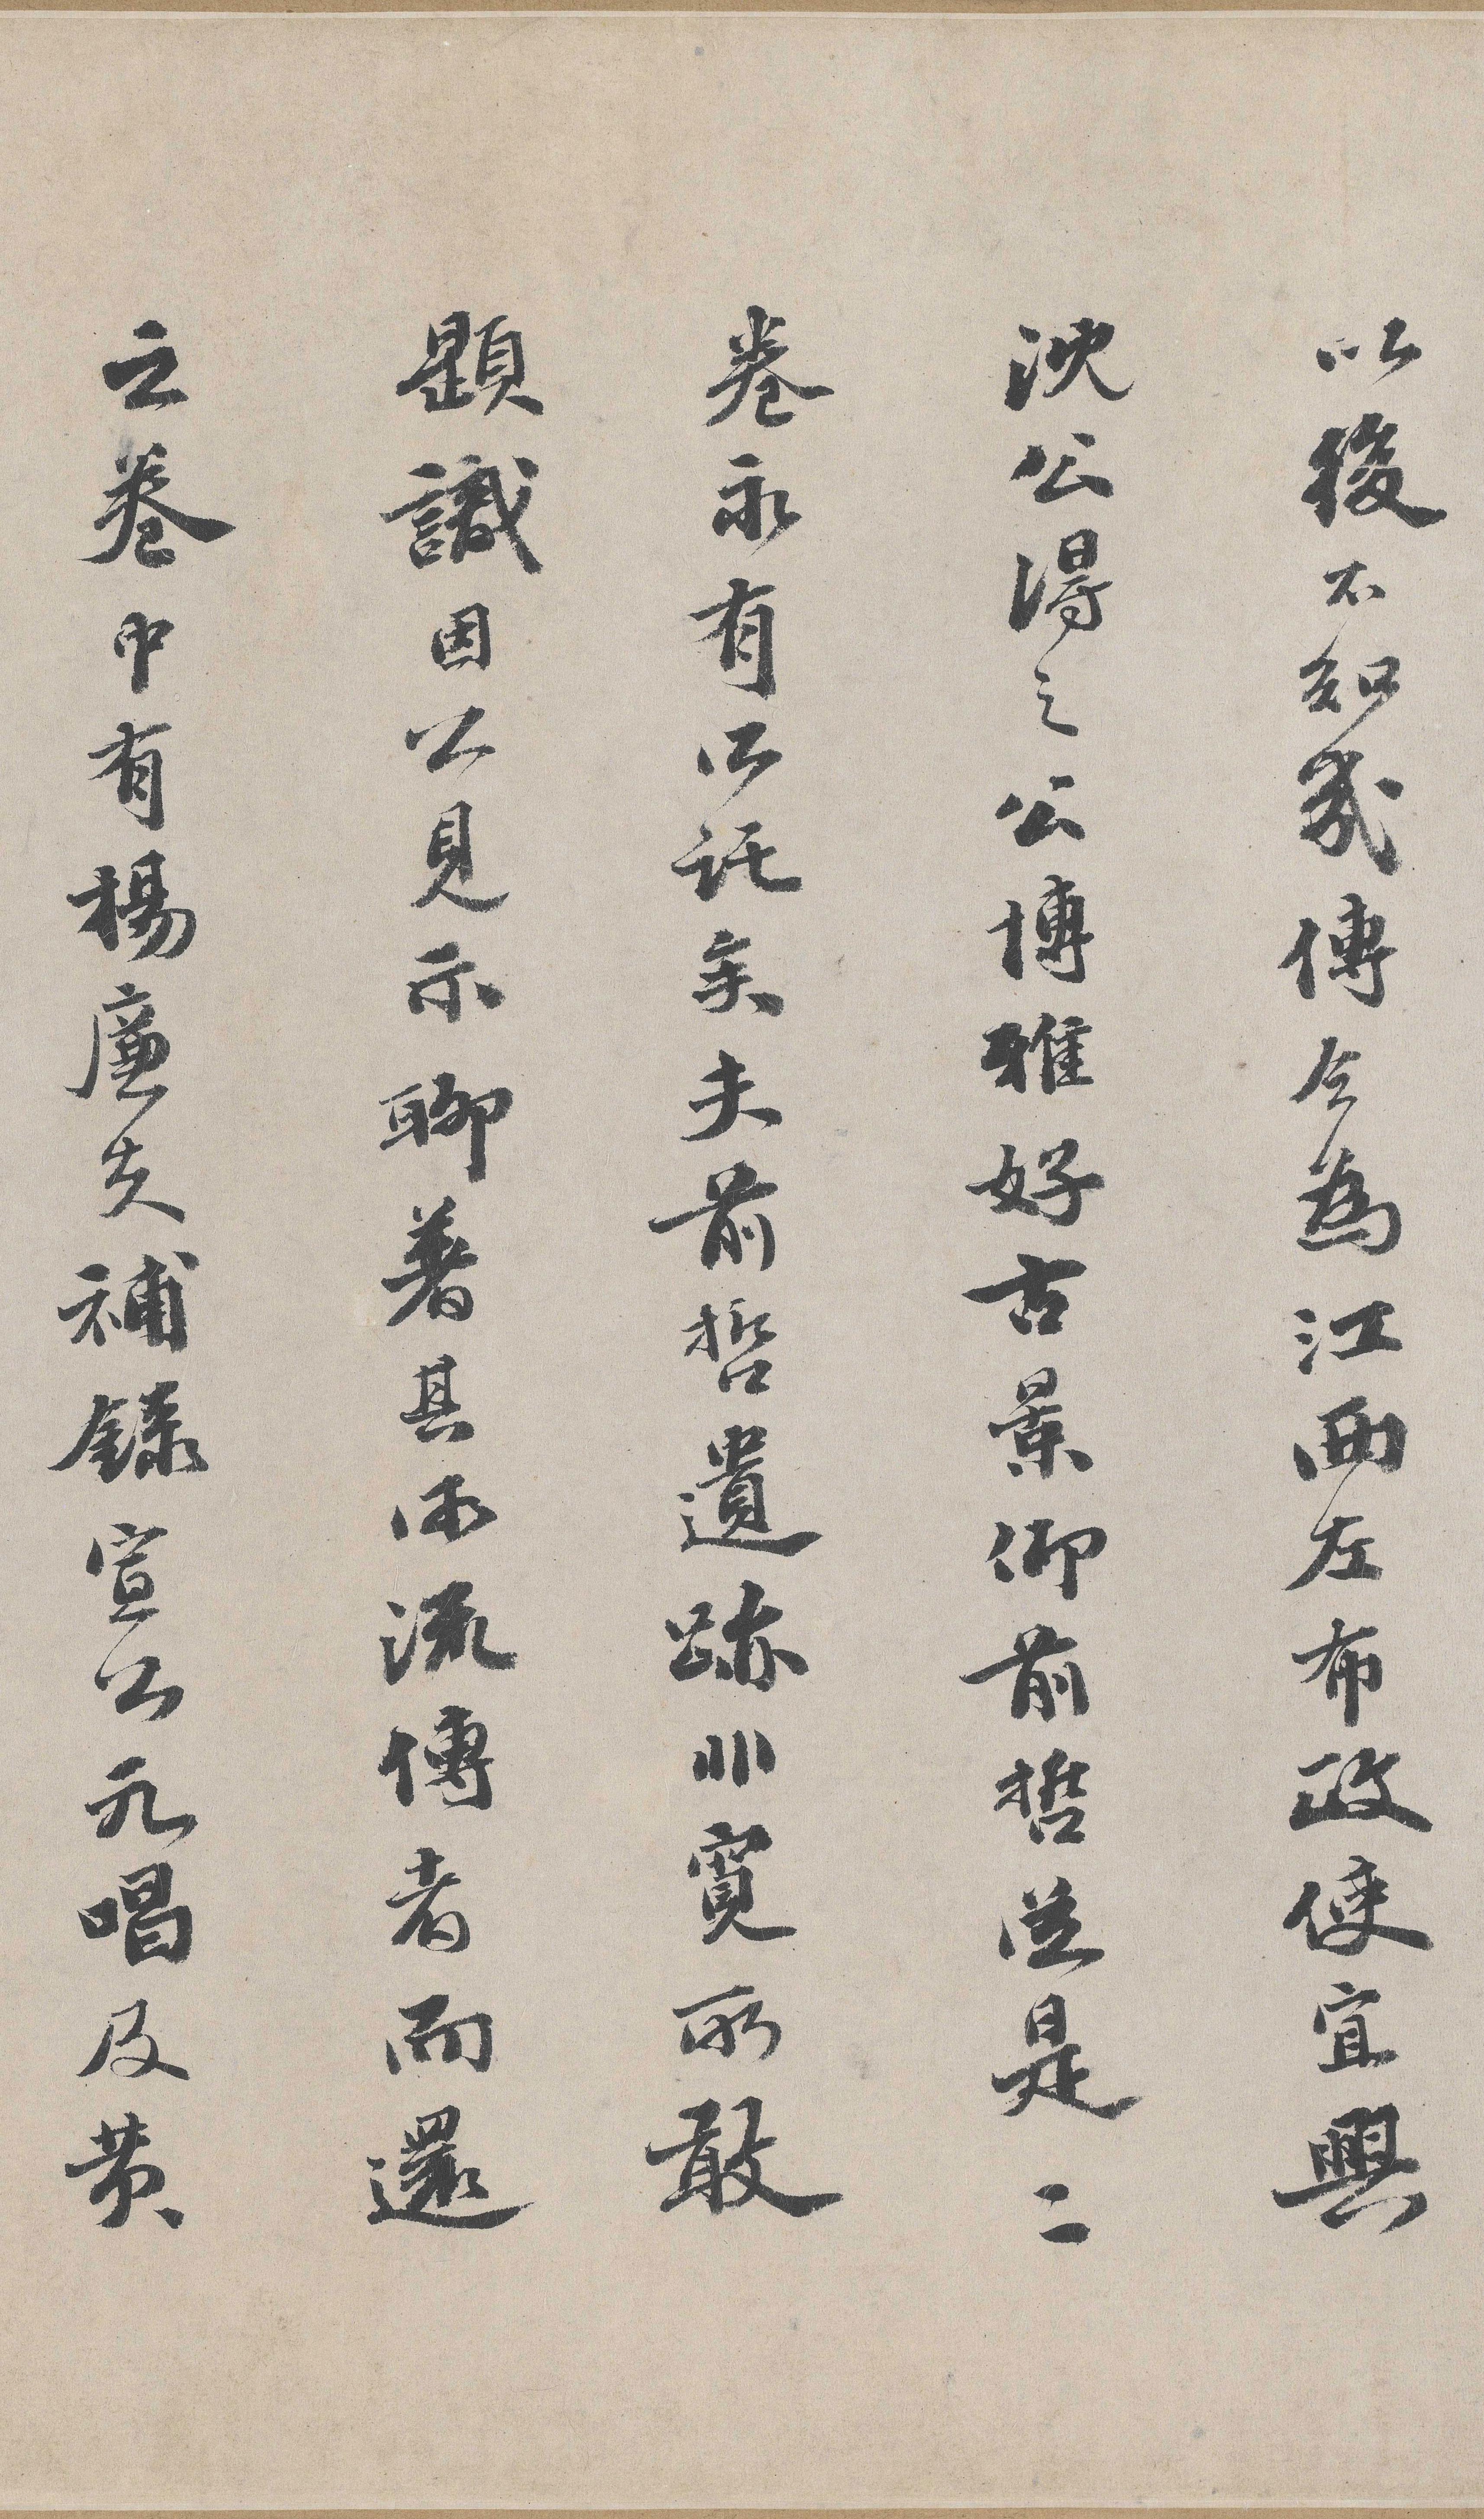 以後不知幾傳今為江西左布政使宜興
沈公得之公博雅好古景仰前哲從是二
卷永有所託矣夫前哲遺跡非寬所敢
題識因公見示聊著其所流傳者而還
之卷中有楊廉夫補錄宣公元唱及黄